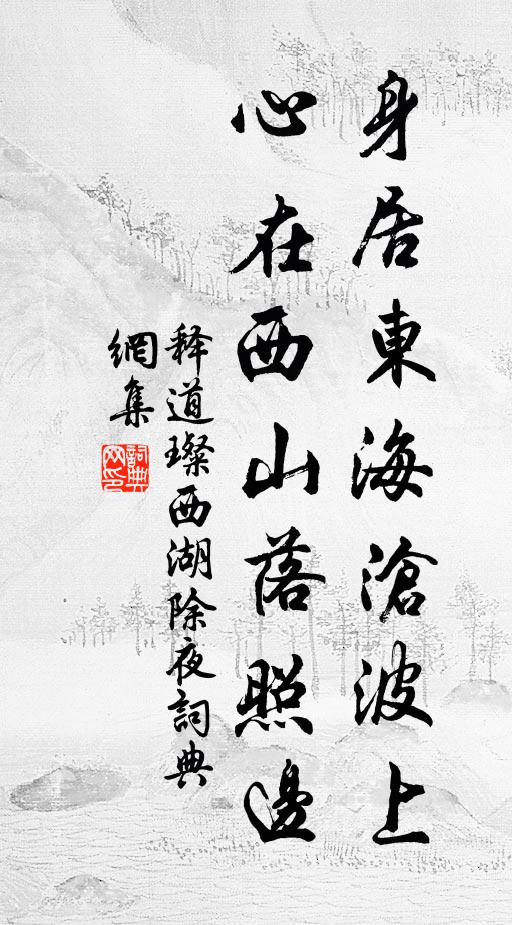 身居東海滄波上
心在西山落照邊
释道璨西湖除夜詞典
網集
詞典网印